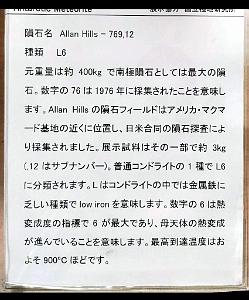 Antarctic Meteorite
展示協力 国立極地研究所
隕石名 Allan Hills - 769,12
種類 L6
元重量は約 400kg で南極隕石としては最大の隕
石。数字の 76 は 1976 年に採集されたことを意味し
ます。Allan Hills の隕石フィールドはアメリカ・マクマ
ード基地の近くに位置し、日米合同の隕石探査によ
り採集されました。展示試料はその一部で約 3kg
(,12 はサブナンバー)。普通コンドライトの 1 種で L6
に分類されます。L はコンドライトの中では金属鉄に
乏しい種類で low iron を意味します。数字の 6 は熱
変成度の指標で 6 が最大であり、母天体の熱変成
が進んでいることを意味します。最高到達温度はお
よそ 900°C ほどです。